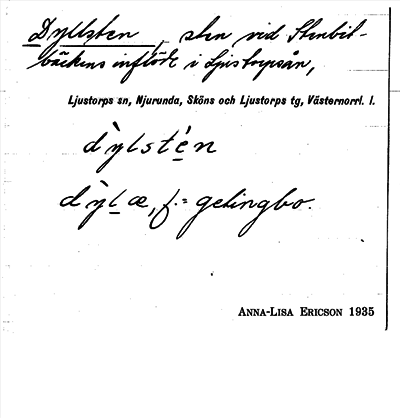 Dyllsten, sten vid Stenbit-
bäckens inflöde i Ljustorpsån,
Ljustorps sn, Njurunda, Sköns och Ljustorps tg, Västernorrl. l.
dỳlstén
dỳlæ, f. = getingbo.
ANNA-LISA ERICSON 1935